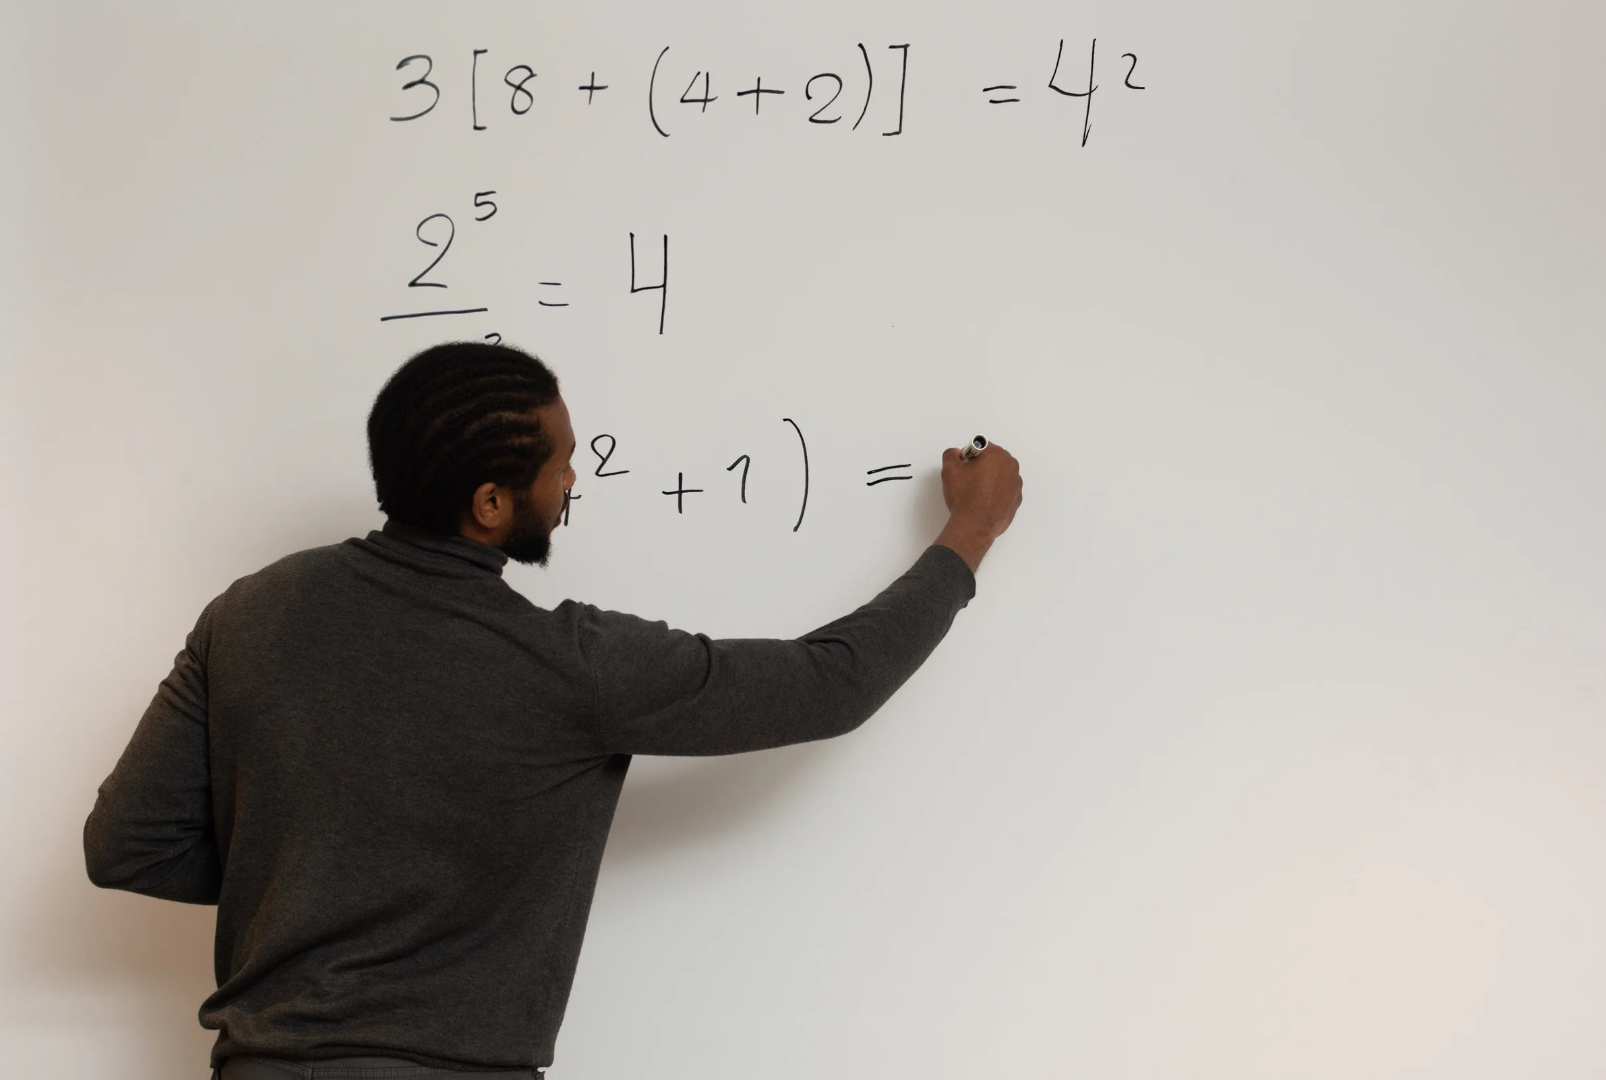 3 [ 8 + ( 4 + 2 ) ] = 42
2^5 = 4
^2 + 1 ) =